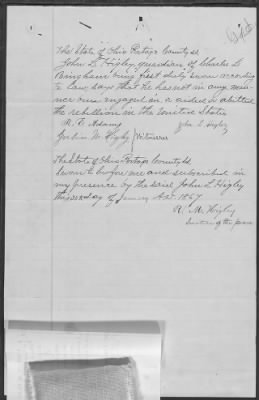 The State of Ohio Portage County ss
John L Higley guardian of Charles L
Bingham being first duly sworn according
to law says that he has not in any man-
ner ever engaged in or aided or abetted
the rebellion in the United States
R. E. Adams John L Higley
M. Higley Witnesses
The State of Ohio Portage County ss
Sworn to before me and subscribed in
my presence by the said John L Higley
this day of January A.D. 1867
R. M. Higley
Justice of the peace